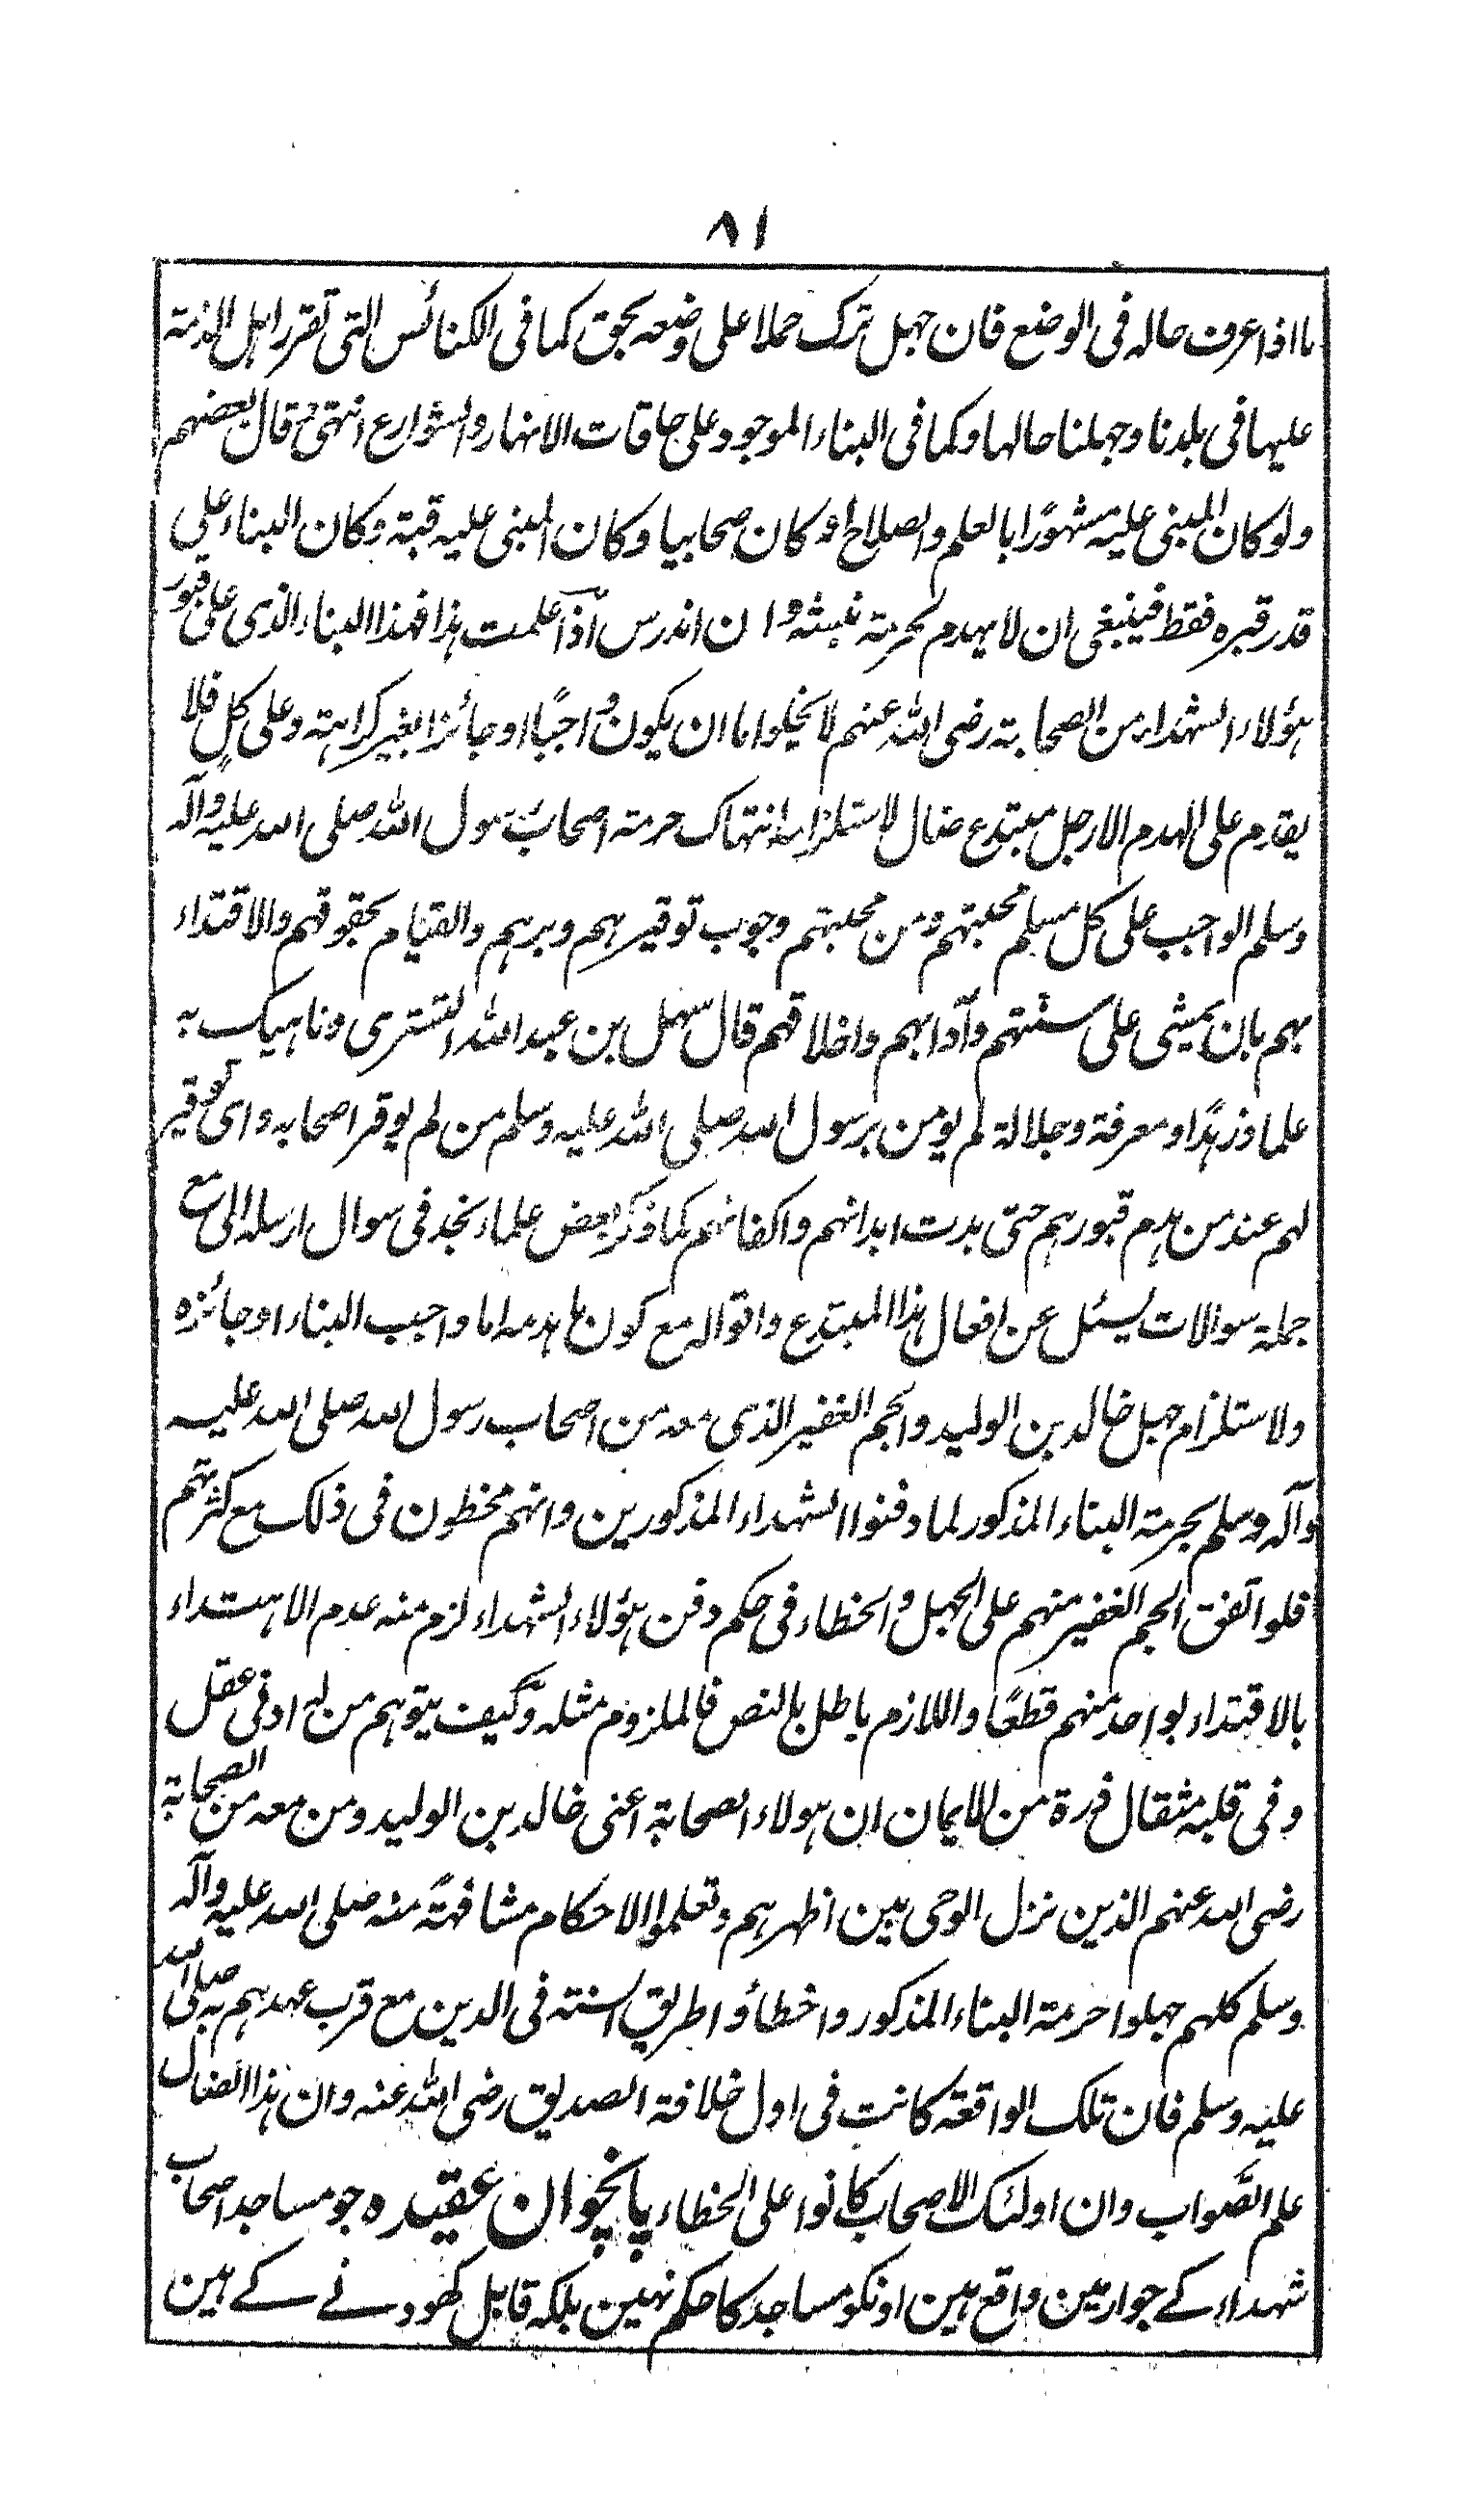 ۸۱
ما اذا عرف حاله فی الوضع فان جهل ترک حملا علی وضعه بحق کما فی الکنائس التی تقرر اهل الذمته
علیها فی بلدنا وجهلنا حالها وکما فی البناء الموجود علی حافات الانهار والشوارع انتهی وقال بعضهم
ولو کان المبنی علیه مشهورًا بالعلم والصلاح او کان صحابیا وکان المبنی علیه قبة وکان البناء علی
قدر قبره فقط فینبغی ان لا یهدم لحرمته نبشه وان اندرس اذا علمت هذا فهذا البناء الذی علی قبور
هؤلاء الشهداء من الصحابة رضی الله عنهم لا یخلو اما ان یکون واجبًا او جائزا بغیر کراهته وعلی کل فلا
یقدم علی الهدم الا رجل مبتدع ضال لاستلزامه انتهاک حرمته اصحاب رسول الله صلی الله علیه وآله
وسلم الواجب علی کل مسلم محبتهم ومن محبتهم وجوب توقیرهم وبرهم والقیام بحقوقهم والاقتداء
بهم بان یمشی علی سنتهم وآدابهم واخلاقهم قال سهل بن عبد الله التستری وناهیک به
علما وزهدًا ومعرفة وجلالة لم یومن برسول الله صلی الله علیه وسلم من لم یوقر اصحابه وای توقیر
لهم عند من هدم قبورهم حتی بدت ابدانهم واکفانهم کما ذکر بعض علماء نجد فی سوال ارسله الی مع
جملة سوالات یسئل عن افعال هذا المبتدع واقواله مع کون ما هدمه اما واجب البناء او جائزه
ولاستلزام جهل خالد بن الولید والجم الغفیر الذی معه من اصحاب رسول الله صلی الله علیه
وآله وسلم بحرمة البناء المذکور لما دفنوا الشهداء المذکورین وانهم مخطون فی ذلک مع کثرتهم
فلو اتفق الجم الغفیر منهم علی الجهل والخطاء فی حکم دفن هؤلاء الشهداء لزم منه عدم الاهتداء
بالاقتداء بواحد منهم قطعًا واللازم باطل بالنص فالملزوم مثله وکیف یتوهم من له ادنی عقل
وفی قلبه مثقال ذرة من الایمان ان هولاء الصحابة اعنی خالد بن الولید ومن معه من الصحابة
رضی الله عنهم الذین نزل الوحی بین اظهرهم وتعلموا الاحکام مشافهةً منه صلی الله علیه وآله
وسلم کلهم جهلوا حرمة البناء المذکور واخطأوا طریق السنته فی الدین مع قرب عهدهم به صلی الله
علیه وسلم فان تلک الواقعة کانت فی اول خلافة الصدیق رضی الله عنه وان هذا الضال
علم الصواب وان اولئک الاصحاب کانوا علی الخطاء پانچوان عقیدہ جو مساجد اصحاب
شهداء کے جوار مین واقع ہین اونکو مساجد کا حکم نہین بلکہ قابل کھودنے کے ہین